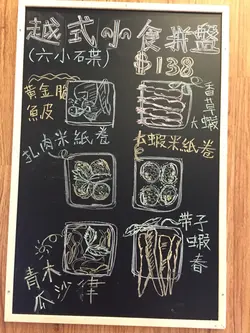 越式小食拼盤
(六小碟) $138
黃金脆
魚皮
香草
大蝦
扎肉米紙卷
大蝦米紙卷
青木
瓜沙律
帶子
蝦
春